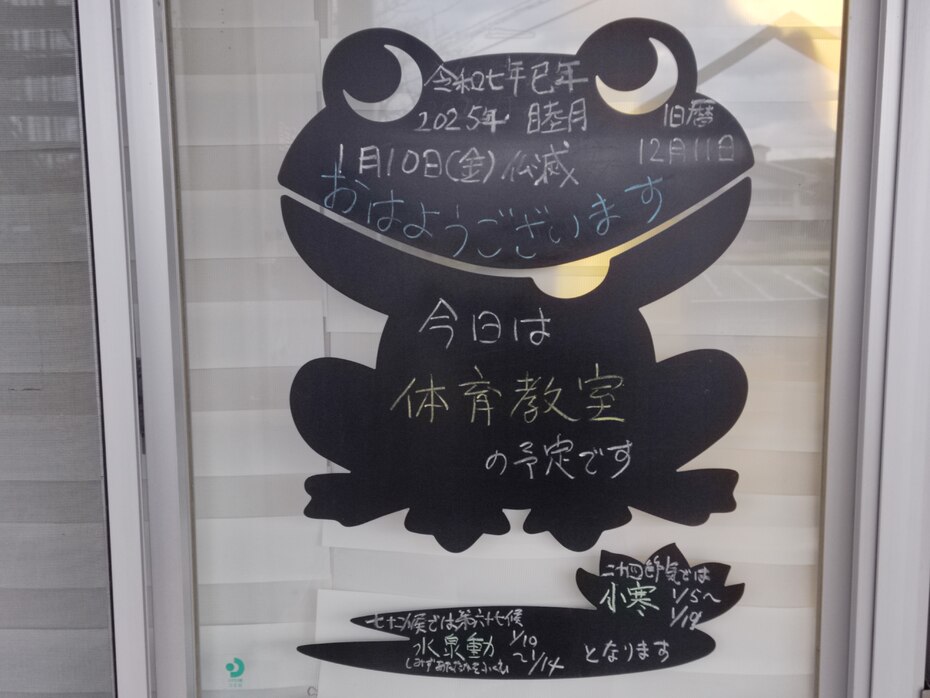 令和七年巳年
2025年 睦月
旧暦
12月11日
1月10日(金)仏滅
おはようございます
今日は
体育教室
の予定です
二十四節気では
小寒
1/5〜
1/19
七十二候では第六十七候
水泉動
1/10
〜1/14
しみずあたたかをふくむ
となります